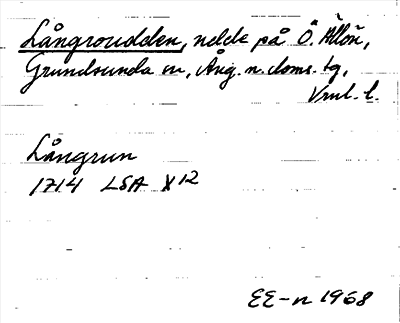 Långroudden, udde på Ö. Ällön,
Grundsunda sn, Ång. n. doms. tg,
Vrml. l.
Långrun
1714 LSA X12
EE-n 1968